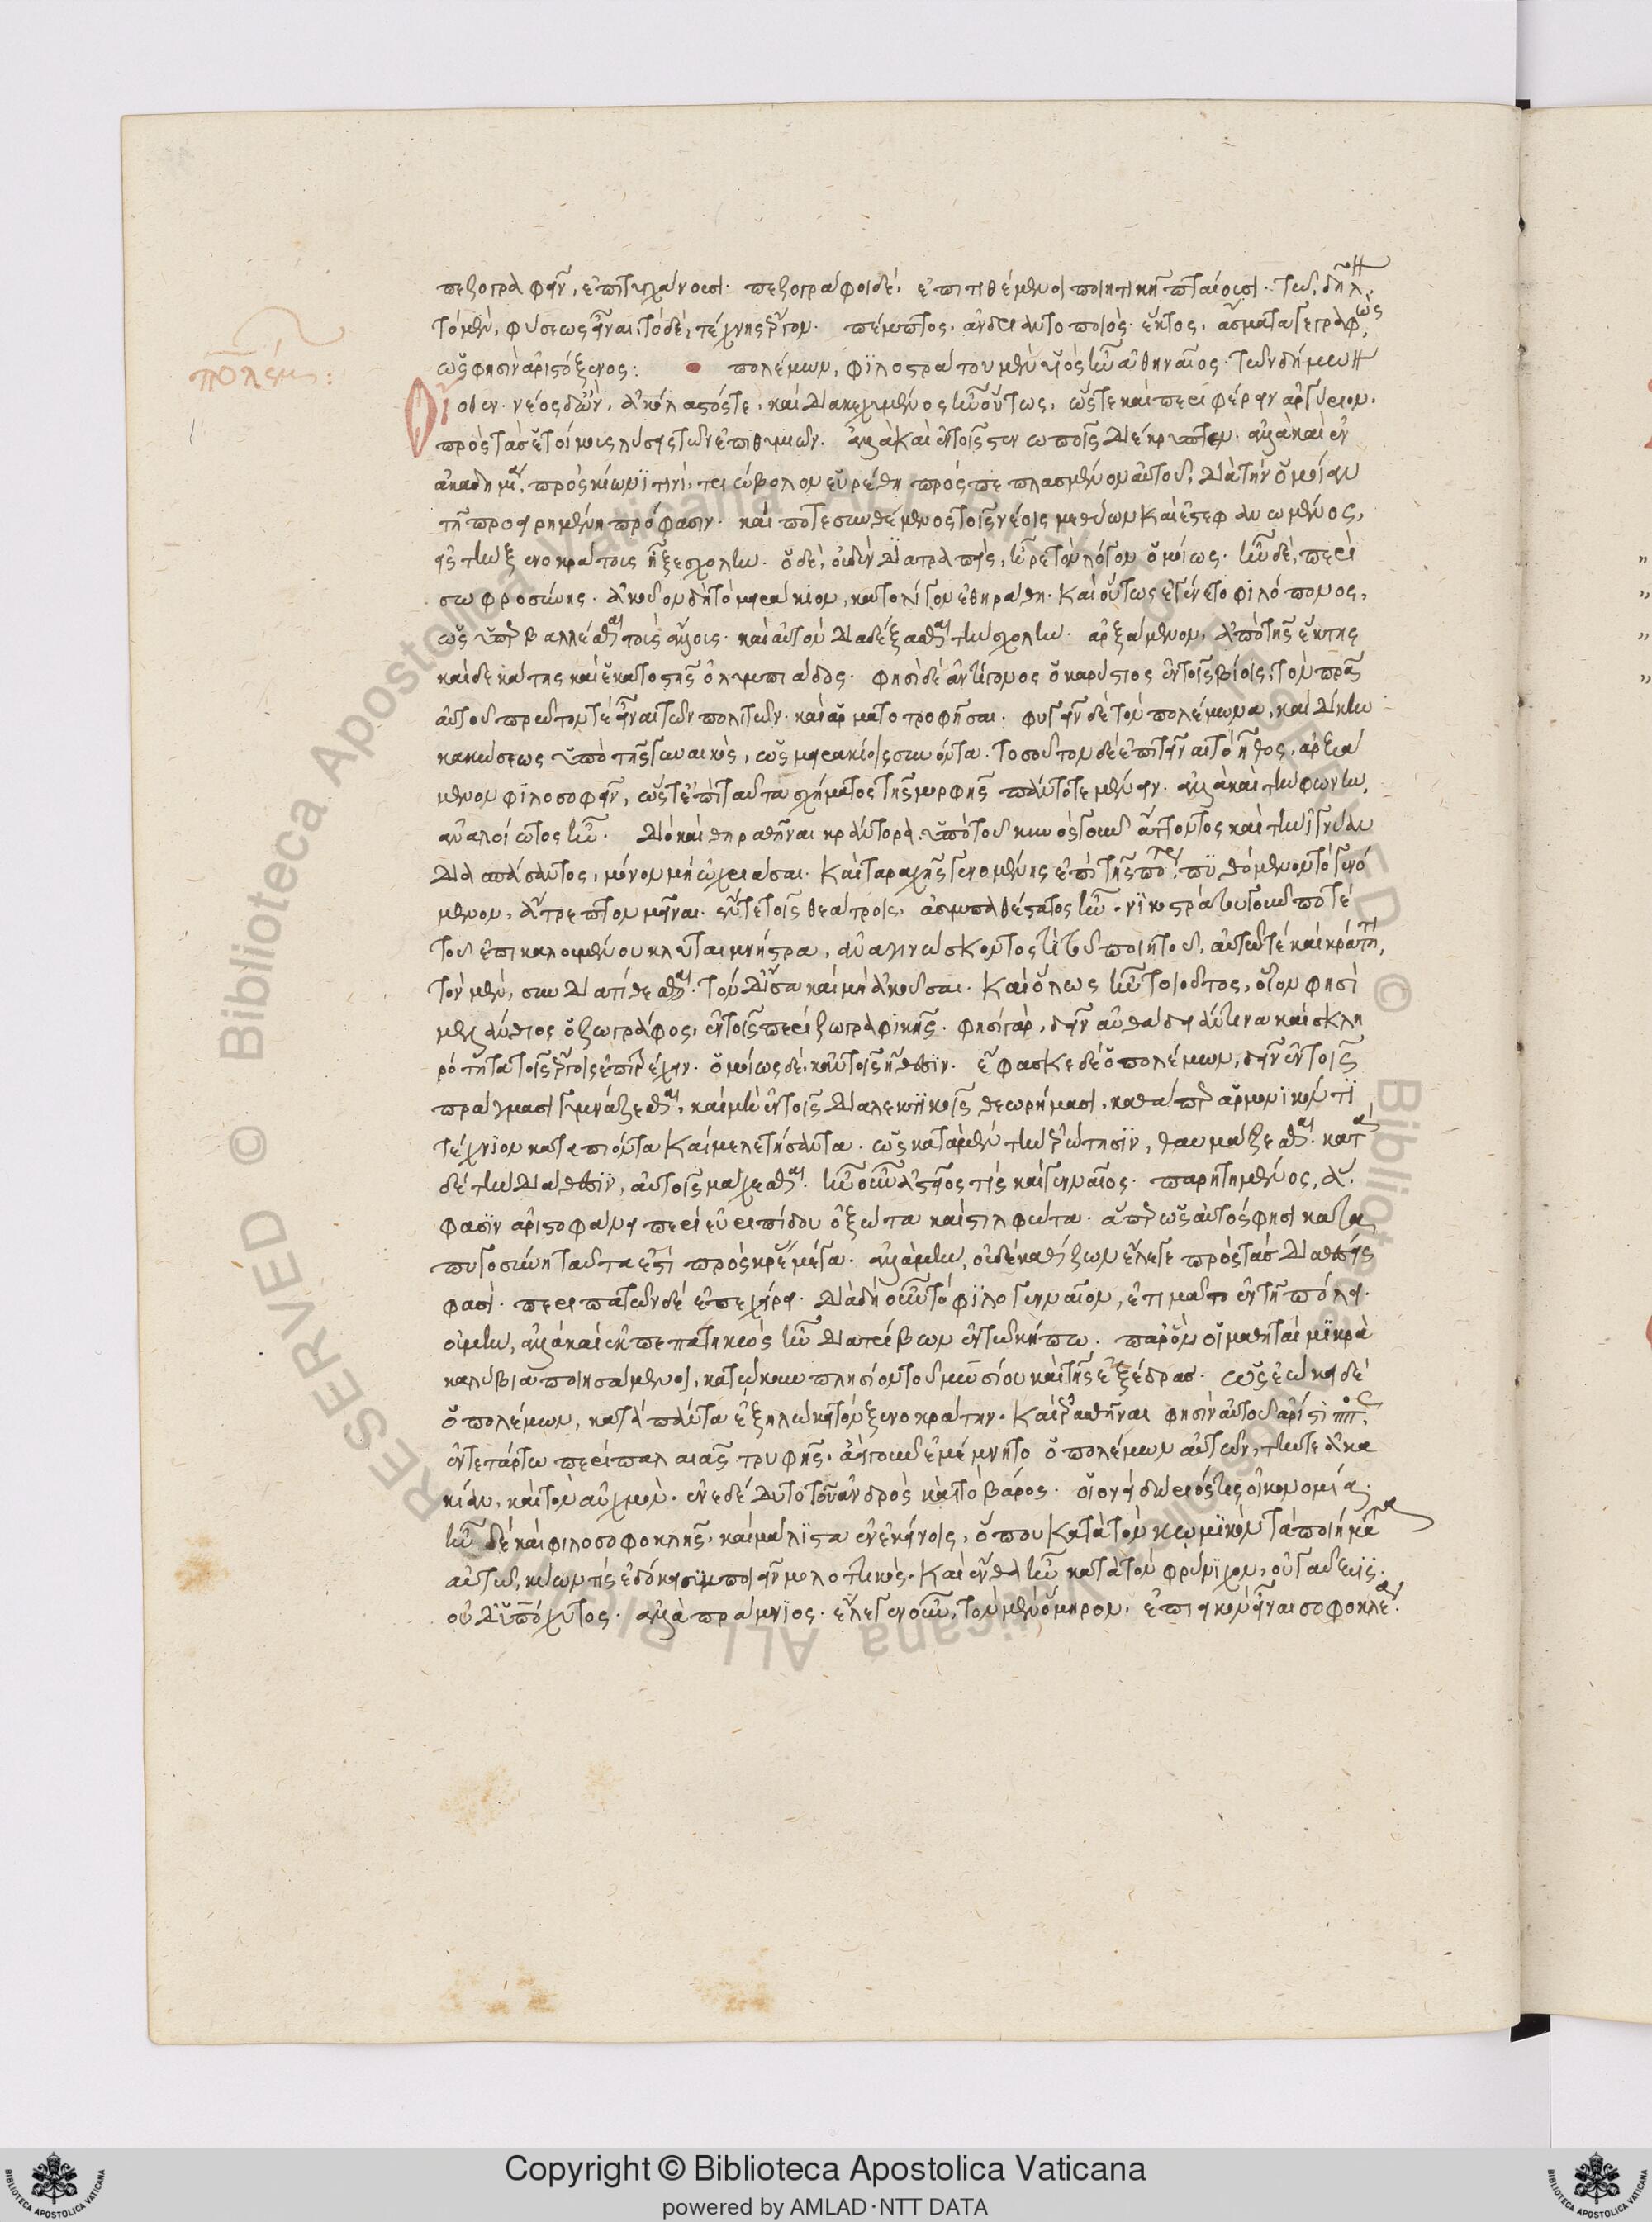 πολέμων:
πεζογραφεῖν, ἐπιτυγχάνουσι· πεζογράφοι δὲ, ἐπιτιθέμενοι ποιητικῆ πταίουσι· τῶ δῆλ
τὸ μὲν, φύσεως εἶναι, τὸ δὲ, τέχνης ἔργον· πέμπτος, ἀνδριαντοποιὸς· ἕκτος, ἄσματα γεγραφὼς
ὥς φησιν ἀριστόξενος: πολέμων, φϊλοστράτου μὲν υἱὸς ἦν ἀθηναῖος· τῶν δήμων
οἴοθεν· νέος δ' ὢν, ἀκόλαστός τε, καὶ διακεχυμένος ἦν οὕτως, ὥστε καὶ περιφέρειν ἀργύριον,
πρὸς τὰς ἑτοίμους λύσεις τῶν ἐπιθυμιῶν· ἀλλὰ καὶ ἐν τοῖς στενωποῖς διέκρυπτεν· ἀλλὰ καὶ ἐν
ἀκαδημία, πρὸς κίωνϊ τινὶ, τριώβολον εὑρέθη προσπεπλασμένον αὐτοῦ, διὰ τὴν ὁμοίαν
τῆ προειρημένη πρόφασιν· καί ποτε συνθέμενος τοῖς νέοις μεθύων καὶ ἐστεφανωμένος,
εἰς τὴν ξενοκράτους ἦξε σχολὴν· ὁ δὲ, οὐδὲν διατραπεὶς, εἶρε τὸν λόγον ὁμοίως· ἦν δὲ, περὶ
σωφροσύνης· ἀκοῦον δὴ τὸ μειράκιον, κατ' ὀλίγον ἐθηράθη· καὶ οὕτως ἐγένετο φιλόπονος,
ὡς ὑπερβάλλεσθαι τοὺς ἄλλους· καὶ αὐτὸν διαδέξασθαι τὴν σχολὴν· ἀρξάμενον, ἀπὸ τῆς ἕκτης
καὶ δεκάτης καὶ ἑκατοστῆς ὀλυμπιάδος· φησὶ δὲ ἀντίγονος ὁ καρύστιος ἐν τοῖς βίοις, τὸν πρα
αὐτοῦ πρῶτόν τε εἶναι τῶν πολιτῶν· καὶ ἁρματοτροφῆσαι· φυγεῖν δὲ τὸν πολέμωνα, καὶ δίκην
κακώσεως ὑπὸ τῆς γυναικὸς, ὡς μειρακίοις συνόντα· τοσοῦτον δὲ ἐπιτεῖναι τὸ ἦθος, ἀρξά
μενον φϊλοσοφεῖν, ὥστ' ἐπὶ ταυτὰ σχήματος τῆς μορφῆς πάντοτε μένειν· ἀλλὰ καὶ τὴν φωνὴν,
ἀναλοίωτος ἦν· διὸ καὶ θηραθῆναι κράντορα ὑπὸ τοῦ κυνὸς γοῦν ἅπτοντος καὶ τὴν ἰγνύαν
διασπάσαντος, μόνον μὴ ὠχριάσαι· καὶ ταραχῆς γενομένης ἐπὶ τῆς πόλεως, πϋθόμενον τὸ γενό
μενον, ἄτρεπτον μεῖναι· ἔν τε τοῖς θεάτροις, ἀσυμπαθέστατος ἦν· νϊκοστράτου γοῦν ποτὲ
τοῦ ἐπικαλουμένου κλυταιμνήστρα, ἀναγινώσκοντός τι τοῦ ποιητοῦ, αὐτῶ τὲ καὶ κράτητι,
τὸν μὲν, συνδιατίθεσθαι· τὸν δ' ἴσα καὶ μὴ ἀκοῦσαι· καὶ ὅλως ἦν τοιοῦτος, οἷον φησὶ
μελάνθιος ὁ ζωγράφος, ἐν τοῖς περὶ ζωγραφικῆς· φησὶ γὰρ, δεῖν αὐθάδειάν τινα καὶ σκλη
ρότητα τοῖς ἔργοις ἐπιτρέχειν· ὁμοίως δὲ, κἀν τοῖς ἤθεσϊν· ἔφασκε δὲ ὁ πολέμων, δεῖν ἐν τοῖς
πράγμασι γυμνάζεσθαι, καὶ μὴ ἐν τοῖς διαλεκτϊκοῖς θεωρήμασι, καθάπερ ἁρμονϊκόν τϊ
τέχνϊον καταπιόντα καὶ μελετήσαντα· ὡς κατὰ μὲν τὴν ἐρώτησϊν, θαυμάζεσθαι· κατὰ
δὲ τὴν διάθεσϊν, αὐτοῖς μάχεσθαι· ἦν οὖν ἀστεῖός τις καὶ γενναῖος· παρητημένος, ἅ
φασϊν ἀριστοφάνη περὶ εὐριπίδου ὀξωτὰ καὶ σιλφωτὰ· ἅπερ ὡς αὐτός φησι κατα
πυγοσύνη ταῦτά ἐστι πρὸς κρέας μέγα· ἀλλὰ μὴν, οὐδὲ καθίζων ἔλεγε πρὸς τὰς διαθέσεις
φασὶ· περιπατῶν δὲ ἐπεχείρει· διὰ δὴ οὖν τὸ φϊλογενναῖον, ἐτιμᾶτο ἐν τῆ πόλει·
οὐ μὴν, ἀλλὰ καὶ ἐκπεπατηκὼς ἦν διατρίβων ἐν τῶ κήπω· παρ' ὃν οἱ μαθηταὶ μϊκρὰ
καλύβια ποιησάμενοι, κατώκουν πλησίον τοῦ μουσείου καὶ τῆς ἐξέδρας· ὡς ἐῴκει δὲ
ὁ πολέμων, κατὰ πάντα ἐζηλωκέναι τὸν ξενοκράτην· καὶ ἐρασθῆναι φησὶν αὐτοῦ ἀρίστιππος
ἐν τετάρτω περὶ παλαιᾶς τρυφῆς· ἀεὶ γοῦν ἐμέμνητο ὁ πολέμων αὐτοῦ, τήν τε ἀκα
κίαν, καὶ τὸν αὐχμὸν· ἐνεδέδυτο τἀνδρὸς καὶ τὸ βάρος· οἱονεὶ δώριός τις οἰκονομία·
ἦν δὲ καὶ φιλοσοφοκλῆς, καὶ μάλϊστα ἐν ἐκείνοις, ὅπου κατὰ τὸν κωμϊκὸν τὰ ποιήματα
αὐτῶ, κύων τις ἐδόκει συμποιεῖν μολοττικὸς· καὶ ἔνθα ἦν κατὰ τὸν φρύνϊχον, οὐ γλυξις·
οὐδ' ὑπόχυτος· ἀλλὰ πράμνϊος· ἔλεγεν οὖν, τὸν μὲν ὅμηρον, ἐπικὸν εἶναι σοφοκλέα·
Copyright © Biblioteca Apostolica Vaticana
powered by AMLAD·NTT DATA